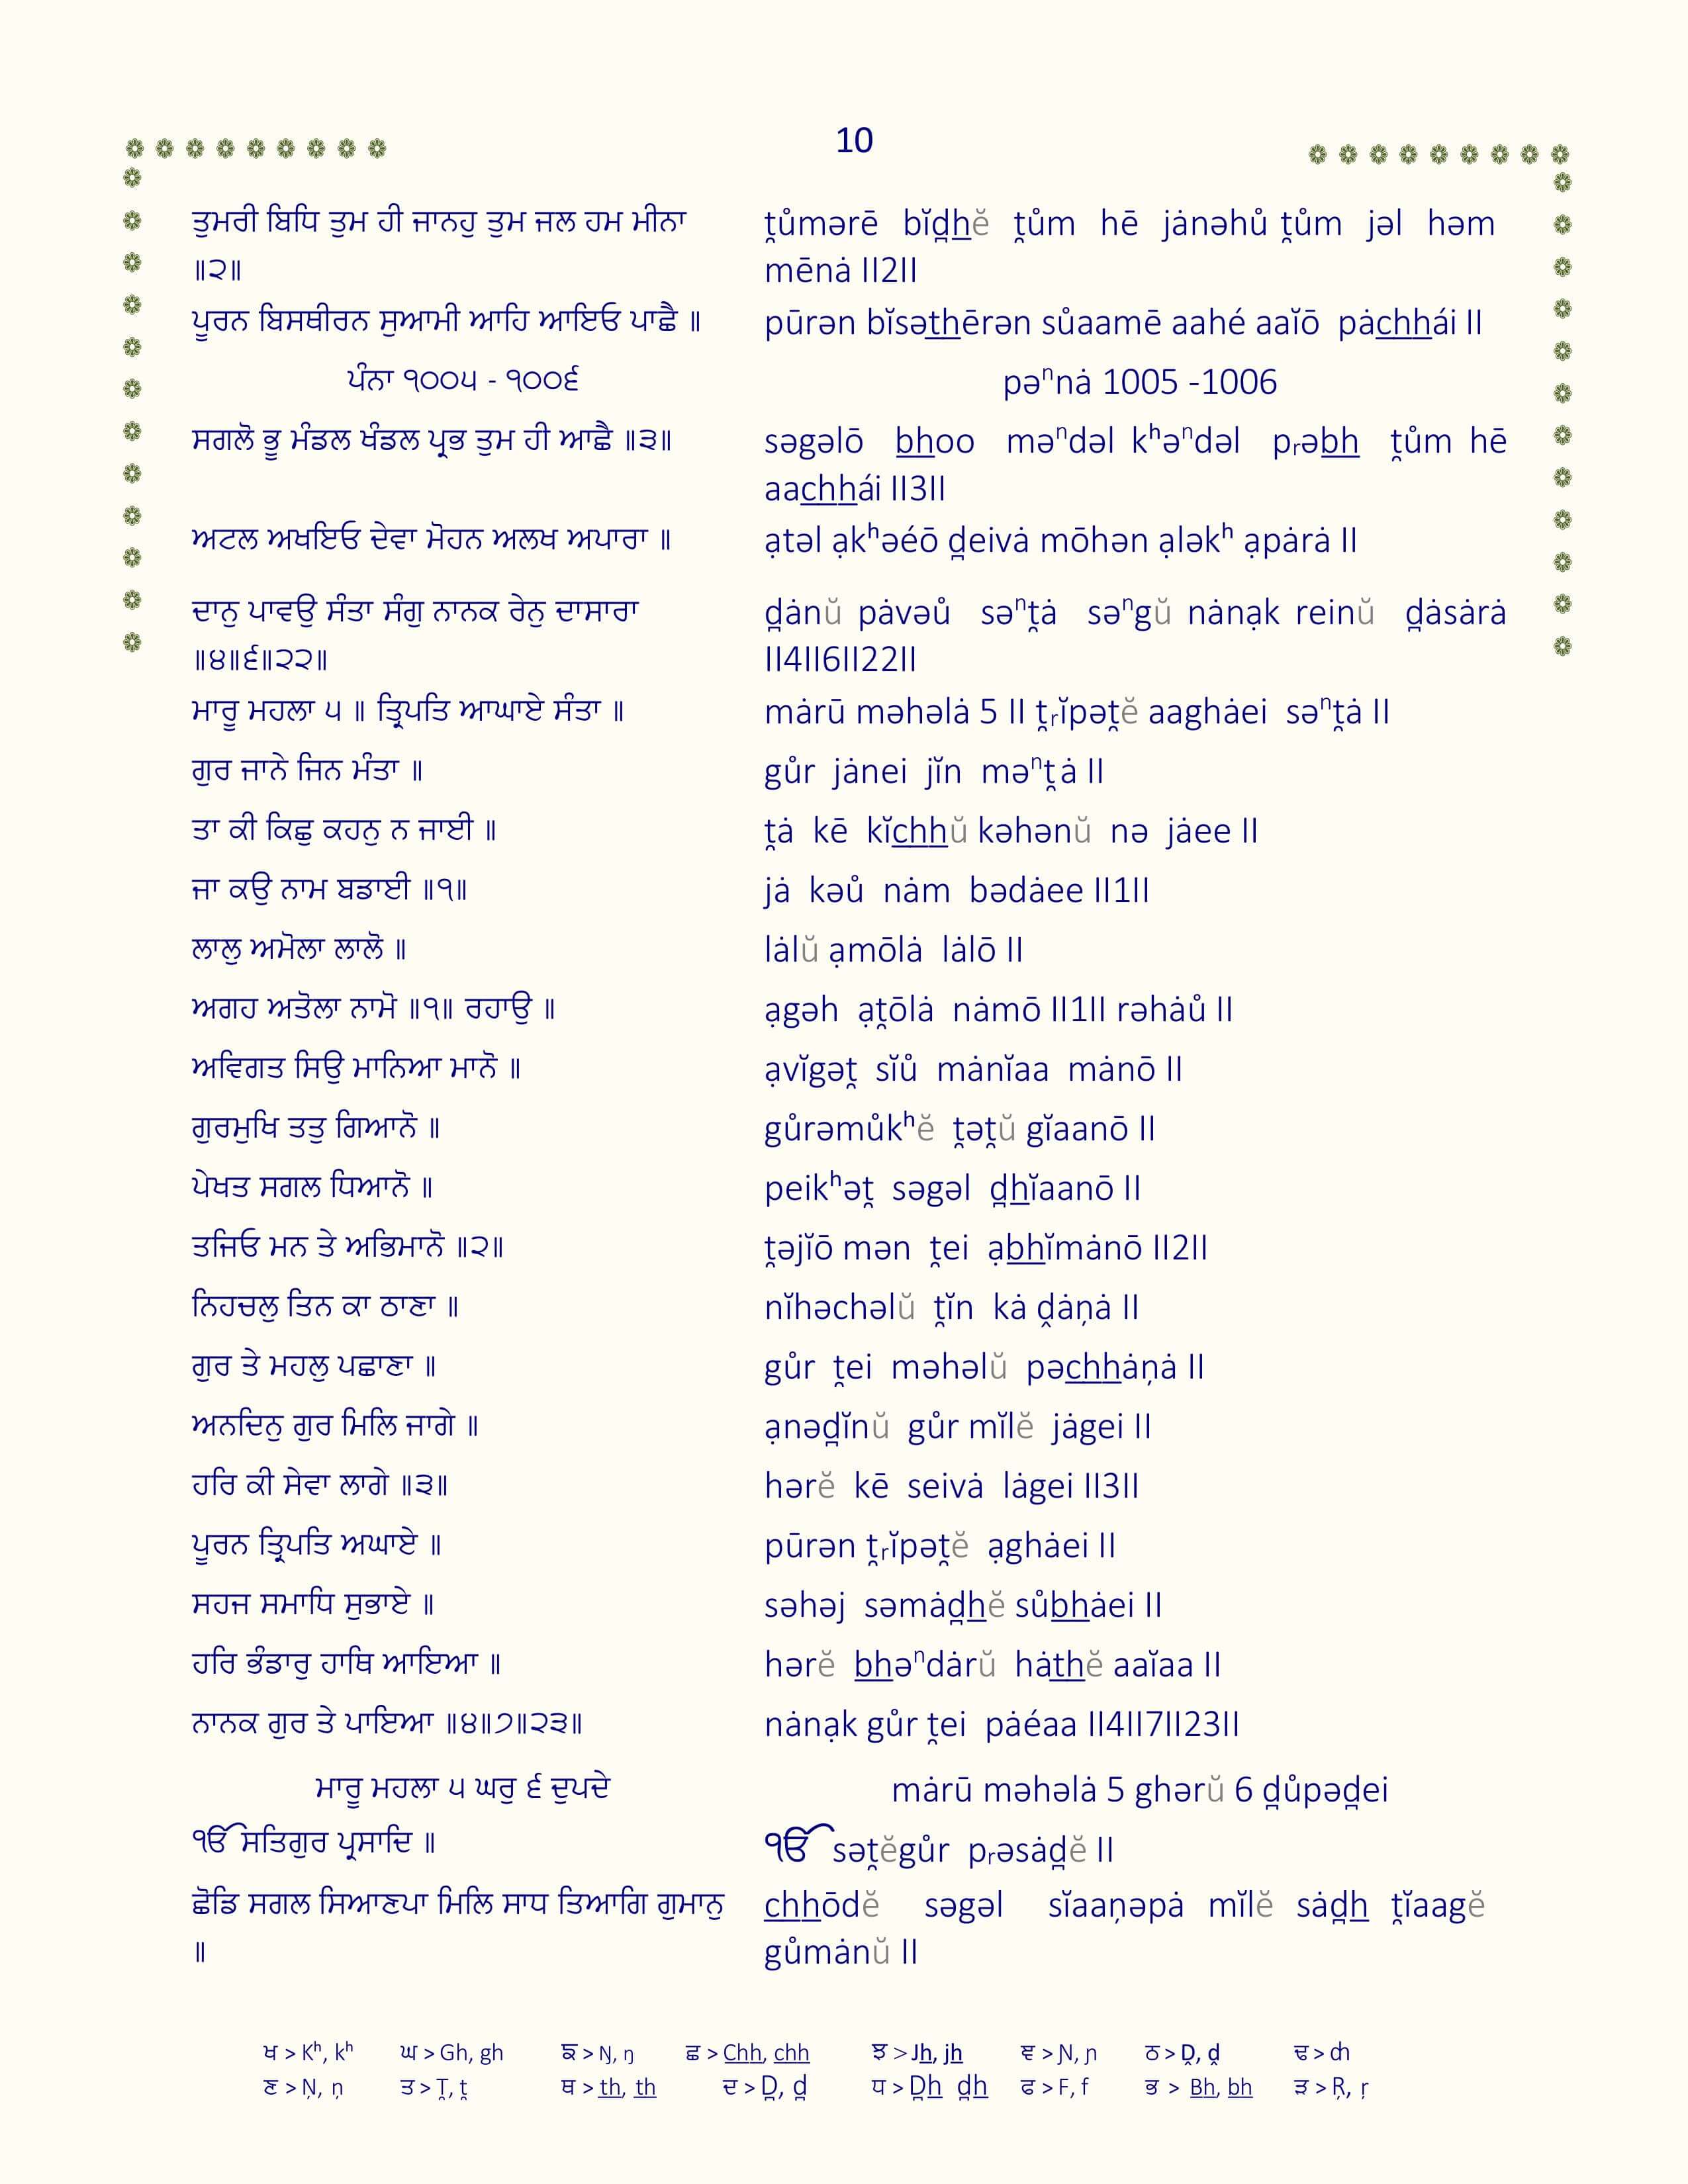 10
ਤੁਮਰੀ ਬਿਧਿ ਤੁਮ ਹੀ ਜਾਨਹੁ ਤੁਮ ਜਲ ਹਮ ਮੀਨਾ
॥੨॥
t̯ůmərē bĭd̪hĕ t̯ům hē jȧnəhů t̯ům jəl həm
mēnȧ II2II
ਪੂਰਨ ਬਿਸਥੀਰਨ ਸੁਆਮੀ ਆਹਿ ਆਇਓ ਪਾਛੈ ॥
pūrən bĭsəthērən sůaamē aahé aaĭō pȧchhái II
ਪੰਨਾ ੧੦੦੫ - ੧੦੦੬
pəⁿnȧ 1005 -1006
ਸਗਲੋ ਭੂ ਮੰਡਲ ਖੰਡਲ ਪ੍ਰਭ ਤੁਮ ਹੀ ਆਛੈ ॥੩॥
səgəlō bhoo məⁿdəl kʰəⁿdəl pᵣəbh t̯ům hē
aachhái II3II
ਅਟਲ ਅਖਇਓ ਦੇਵਾ ਮੋਹਨ ਅਲਖ ਅਪਾਰਾ ॥
ạtəl ạkʰəéō d̪eivȧ mōhən ạləkʰ ạpȧrȧ II
ਦਾਨੁ ਪਾਵਉ ਸੰਤਾ ਸੰਗੁ ਨਾਨਕ ਰੇਨੁ ਦਾਸਾਰਾ
॥੪॥੬॥੨੨॥
d̪ȧnŭ pȧvəů səⁿt̯ȧ səⁿgŭ nȧnạk reinŭ d̪ȧsȧrȧ
II4II6II22II
ਮਾਰੂ ਮਹਲਾ ੫ ॥ ਤ੍ਰਿਪਤਿ ਆਘਾਏ ਸੰਤਾ ॥
mȧrū məhəlȧ 5 II t̯ᵣĭpət̯ĕ aaghȧei səⁿt̯ȧ II
ਗੁਰ ਜਾਨੇ ਜਿਨ ਮੰਤਾ ॥
gůr jȧnei jĭn məⁿt̯ȧ II
ਤਾ ਕੀ ਕਿਛੁ ਕਹਨੁ ਨ ਜਾਈ ॥
t̯ȧ kē kĭchhŭ kəhənŭ nə jȧee II
ਜਾ ਕਉ ਨਾਮ ਬਡਾਈ ॥੧॥
jȧ kəů nȧm bədȧee II1II
ਲਾਲੁ ਅਮੋਲਾ ਲਾਲੋ ॥
lȧlŭ ạmōlȧ lȧlō II
ਅਗਹ ਅਤੋਲਾ ਨਾਮੋ ॥੧॥ ਰਹਾਉ ॥
ạgəh ạt̯ōlȧ nȧmō II1II rəhȧů II
ਅਵਿਗਤ ਸਿਉ ਮਾਨਿਆ ਮਾਨੋ ॥
ạvĭgət̯ sĭů mȧnĭaa mȧnō II
ਗੁਰਮੁਖਿ ਤਤੁ ਗਿਆਨੋ ॥
gůrəmůkʰĕ t̯ət̯ŭ gĭaanō II
ਪੇਖਤ ਸਗਲ ਧਿਆਨੋ ॥
peikʰət̯ səgəl d̪hĭaanō II
ਤਜਿਓ ਮਨ ਤੇ ਅਭਿਮਾਨੋ ॥੨॥
t̯əjĭō mən t̯ei ạbhĭmȧnō II2II
ਨਿਹਚਲੁ ਤਿਨ ਕਾ ਠਾਣਾ ॥
nĭhəchəlŭ t̯ĭn kȧ d̯ȧṇȧ II
ਗੁਰ ਤੇ ਮਹਲੁ ਪਛਾਣਾ ॥
gůr t̯ei məhəlŭ pəchhȧṇȧ II
ਅਨਦਿਨੁ ਗੁਰ ਮਿਲਿ ਜਾਗੇ ॥
ạnəd̪ĭnŭ gůr mĭlĕ jȧgei II
ਹਰਿ ਕੀ ਸੇਵਾ ਲਾਗੇ ॥੩॥
hərĕ kē seivȧ lȧgei II3II
ਪੂਰਨ ਤ੍ਰਿਪਤਿ ਅਘਾਏ ॥
pūrən t̯ᵣĭpət̯ĕ ạghȧei II
ਸਹਜ ਸਮਾਧਿ ਸੁਭਾਏ ॥
səhəj səmȧd̪hĕ sůbhȧei II
ਹਰਿ ਭੰਡਾਰੁ ਹਾਥਿ ਆਇਆ ॥
hərĕ bhəⁿdȧrŭ hȧthĕ aaĭaa II
ਨਾਨਕ ਗੁਰ ਤੇ ਪਾਇਆ ॥੪॥੭॥੨੩॥
nȧnạk gůr t̯ei pȧéaa II4II7II23II
ਮਾਰੂ ਮਹਲਾ ੫ ਘਰੁ ੬ ਦੁਪਦੇ
mȧrū məhəlȧ 5 ghərŭ 6 d̪ůpəd̪ei
ੴ ਸਤਿਗੁਰ ਪ੍ਰਸਾਦਿ ॥
ੴ sət̯ĕgůr pᵣəsȧd̪ĕ II
ਛੋਡਿ ਸਗਲ ਸਿਆਣਪਾ ਮਿਲਿ ਸਾਧ ਤਿਆਗਿ ਗੁਮਾਨੁ
॥
chhōdĕ səgəl sĭaaṇəpȧ mĭlĕ sȧd̪h t̯ĭaagĕ
gůmȧnŭ II
ਖ > Kʰ, kʰ ਘ > Gh, gh ਙ > Ŋ, ŋ ਛ > Chh, chh ਝ > Jh, jh ਞ > Ɲ, ɲ ਠ > D̯, d̯ ਢ > ȸ
ਣ > Ṇ, ṇ ਤ > T̯, t̯ ਥ > th, th ਦ > D̪, d̪ ਧ > D̪h d̪h ਫ > F, f ਭ > Bh, bh ੜ > Ṛ, ṛ